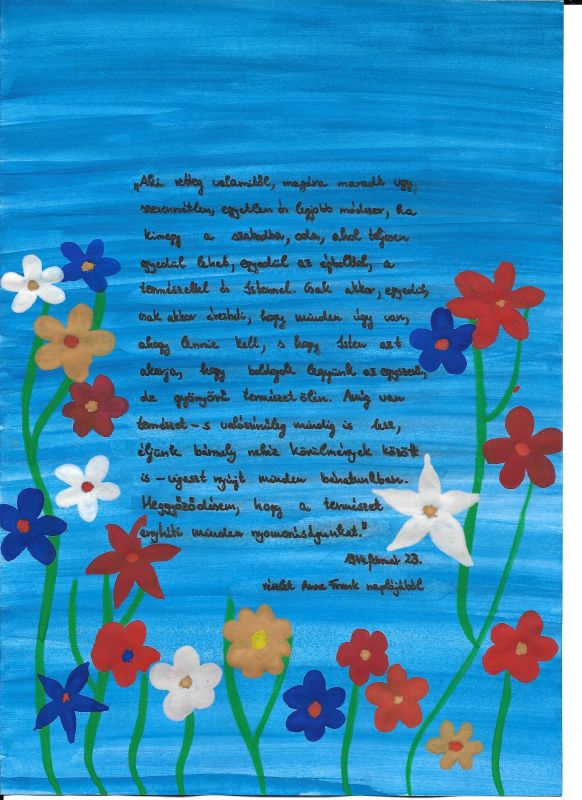 „Aki retteg valamitől, magára maradt vagy
szerencsétlen, egyetlen és legjobb módszer, ha
kimegy a szabadba, oda, ahol teljesen
egyedül lehet, egyedül az égbolttal, a
természettel és Istennel. Csak akkor, egyedül,
csak akkor érezheti, hogy minden úgy van,
ahogy lennie kell, s hogy Isten azt
akarja, hogy boldogok legyünk az egyszerű,
de gyönyörű természet ölén. Amíg van
természet – s valószínűleg mindig is lesz,
éljünk bármely nehéz körülmények között
is – vigaszt nyújt minden bánatunkban.
Meggyőződésem, hogy a természet
enyhíti minden nyomorúságunkat."
1944. február 23.
részlet Anne Frank naplójából